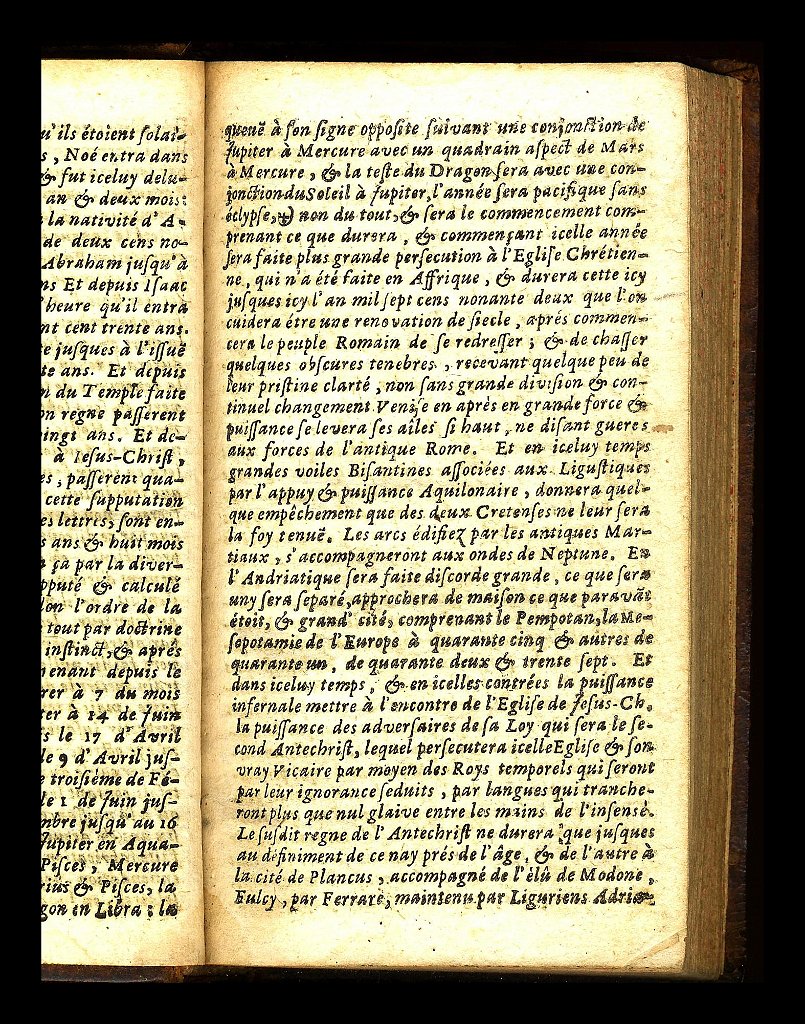 u'ils étoient ſolai-
s, Noé entra dans
& fut iceluy delu-
an & deux mois:
la nativité d'A-
de deux cens no-
Abraham juſqu'à
ns Et depuis Iſaac
'heure qu'il entra
nt cent trente ans.
e juſques à l'iſſuë
te ans. Et depuis
n du Temple faite
on regne paſſerent
ingt ans. Et de-
à Ieſus-Chriſt,
es, paſſerent qua-
cette ſupputation
es lettres, ſont en-
s ans & huit mois
ça par la diver-
pputé & calculé
lon l'ordre de la
tout par doctrine
inſtinct, & aprés
enant depuis le
rer à 7 du mois
er à 14 de Juin
s le 17 d'Avril
le 9 d'Avril juſ-
e troiſiéme de Fé-
le 1 de Juin juſ-
mbre juſqu'au 16
Jupiter en Aqua-
Piſces, Mercure
rius & Piſces, la
gon en Libra: la
queuë à ſon ſigne oppoſite ſuivant une conjonction de
Jupiter à Mercure avec un quadrain aſpect de Mars
à Mercure, & la teſte du Dragon ſera avec une con-
jonction du Soleil à Jupiter, l'année ſera pacifique ſans
éclypſe, & non du tout, & ſera le commencement com-
prenant ce que durera, & commençant icelle année
ſera faite plus grande perſecution à l'Egliſe Chrétien-
ne, qui n'a été faite en Affrique, & durera cette icy
juſques icy l'an mil ſept cens nonante deux que l'on
cuidera étre une renovation de ſiecle, aprés commen-
cera le peuple Romain de ſe redreſſer; & de chaſſer
quelques obſcures tenebres, recevant quelque peu de
leur priſtine clarté, non ſans grande diviſion & con-
tinuel changement. Veniſe en après en grande force &
puiſſance ſe levera ſes aîles ſi haut, ne diſant gueres
aux forces de l'antique Rome. Et en iceluy temps
grandes voiles Biſantines aſſociées aux Liguſtiques
par l'appuy & puiſſance Aquilonaire, donnera quel-
que empêchement que des deux Cretenſes ne leur ſera
la foy tenuë. Les arcs édifiez par les antiques Mar-
tiaux, s'accompagneront aux ondes de Neptune. En
l'Andriatique ſera faite diſcorde grande, ce que ſera
uny ſera ſeparé, approchera de maiſon ce que paravāt
étoit, & grand' cité, comprenant le Pempotan, la Me-
ſopotamie de l'Europe à quarante cinq & autres de
quarante un, de quarante deux & trente ſept. Et
dans iceluy temps, & en icelles contrées la puiſſance
infernale mettre à l'encontre de l'Egliſe de Jeſus-Ch.
la puiſſance des adverſaires de ſa Loy qui ſera le ſe-
cond Antechriſt, lequel perſecutera icelle Egliſe & ſon
vray Vicaire par moyen des Roys temporels qui ſeront
par leur ignorance ſeduits, par langues qui tranche-
ront plus que nul glaive entre les mains de l'inſensé.
Le ſuſdit regne de l'Antechriſt ne durera que juſques
au définiment de ce nay prés de l'âge, & de l'autre à
la cité de Plancus, accompagné de l'élû de Modone,
Fulcy, par Ferrare, maintenu par Liguriens Adria-